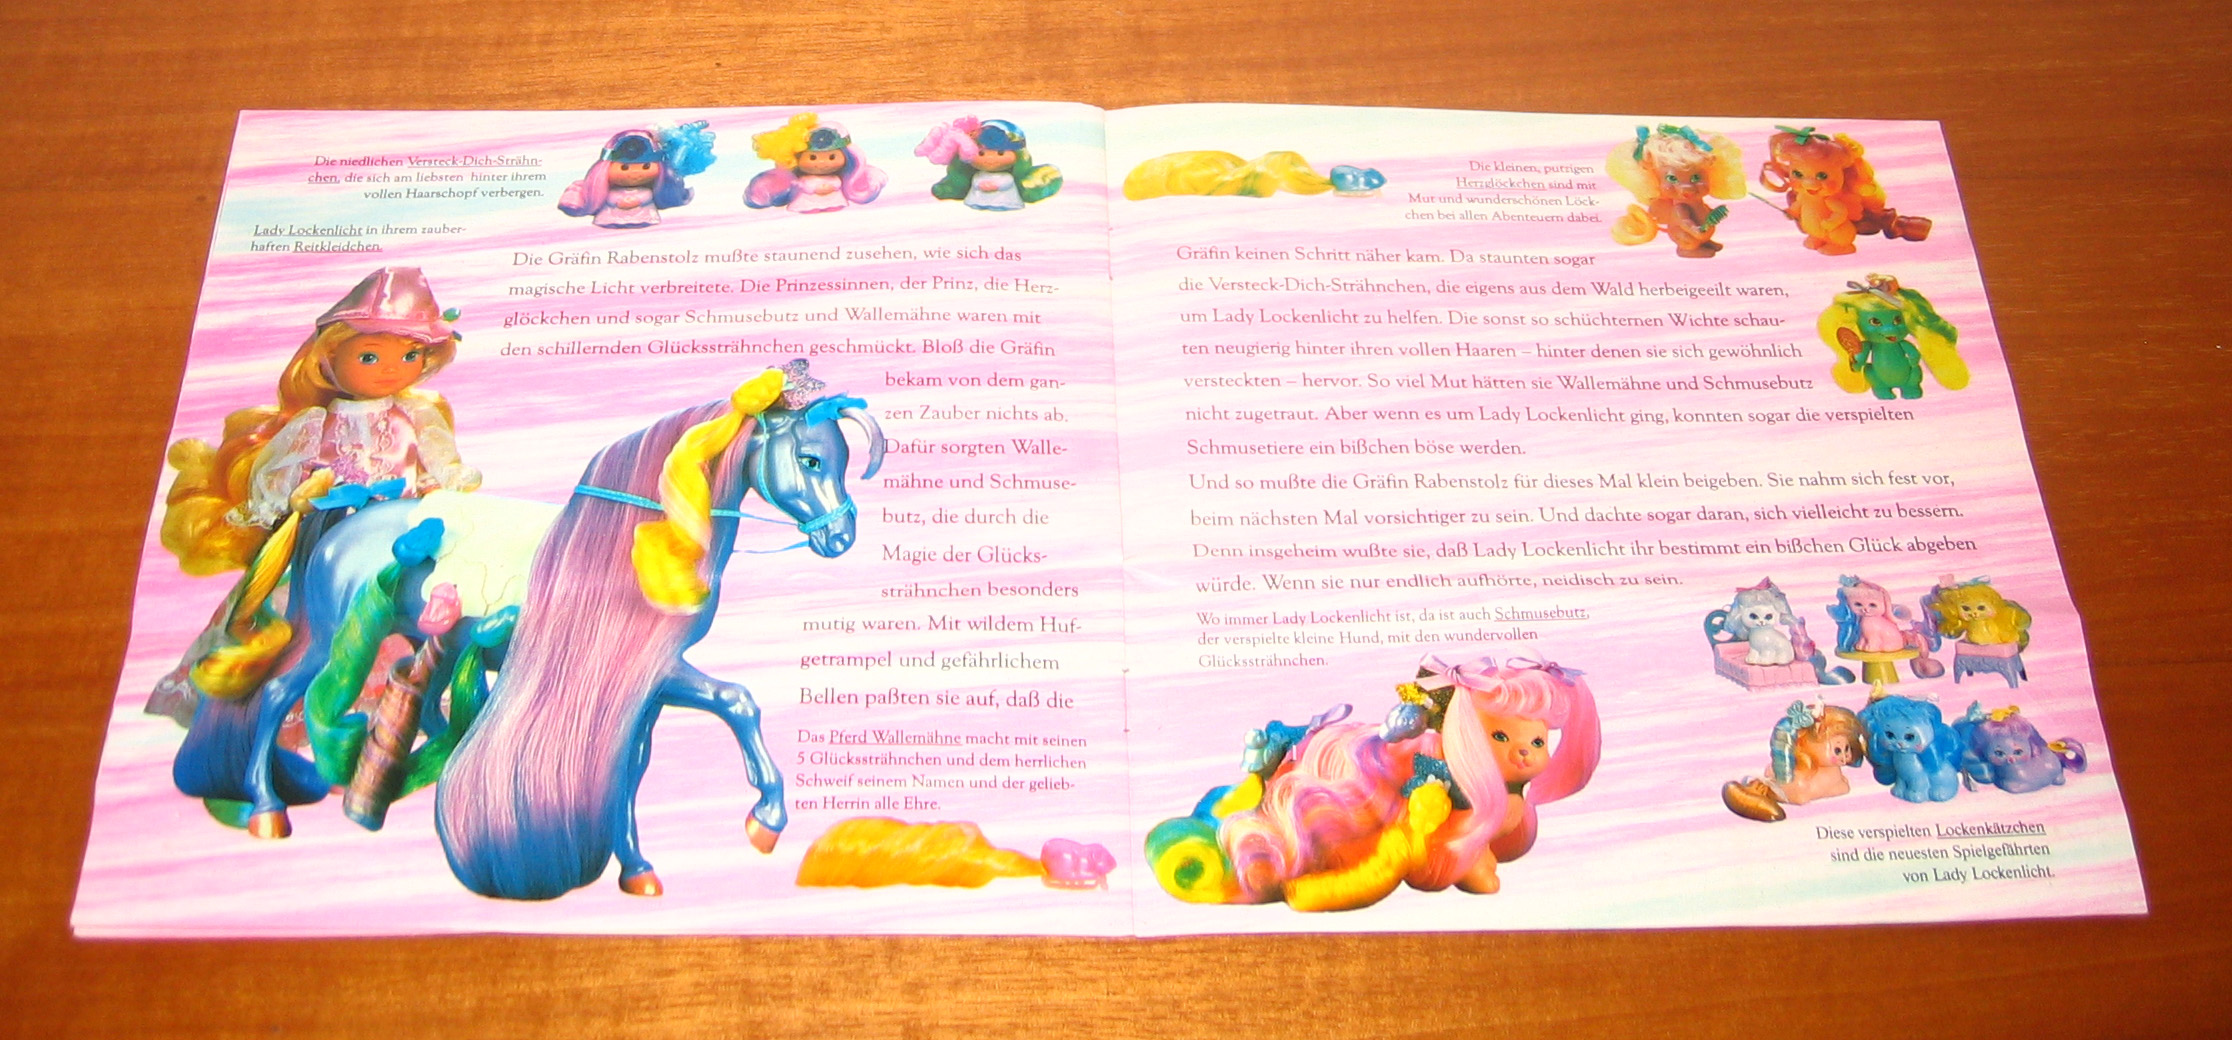 Die niedlichen Versteck-Dich-Strähn-
chen, die sich am liebsten hinter ihrem
vollen Haarschopf verbergen.
Lady Lockenlicht in ihrem zauber-
haften Reitkleidchen.
Die Gräfin Rabenstolz mußte staunend zusehen, wie sich das
magische Licht verbreitete. Die Prinzessinnen, der Prinz, die Herz-
glöckchen und sogar Schmusebutz und Wallemähne waren mit
den schillernden Glückssträhnchen geschmückt. Bloß die Gräfin
bekam von dem gan-
zen Zauber nichts ab.
Dafür sorgten Walle-
mähne und Schmuse-
butz, die durch die
Magie der Glücks-
strähnchen besonders
mutig waren. Mit wildem Huf-
getrampel und gefährlichem
Bellen paßten sie auf, daß die
Das Pferd Wallemähne macht mit seinen
5 Glückssträhnchen und dem herrlichen
Schweif seinem Namen und der gelieb-
ten Herrin alle Ehre.
Die kleinen, putzigen
Herzglöckchen sind mit
Mut und wunderschönen Löck-
chen bei allen Abenteuern dabei.
Gräfin keinen Schritt näher kam. Da staunten sogar
die Versteck-Dich-Strähnchen, die eigens aus dem Wald herbeigeeilt waren,
um Lady Lockenlicht zu helfen. Die sonst so schüchternen Wichte schau-
ten neugierig hinter ihren vollen Haaren – hinter denen sie sich gewöhnlich
versteckten – hervor. So viel Mut hätten sie Wallemähne und Schmusebutz
nicht zugetraut. Aber wenn es um Lady Lockenlicht ging, konnten sogar die verspielten
Schmusetiere ein bißchen böse werden.
Und so mußte die Gräfin Rabenstolz für dieses Mal klein beigeben. Sie nahm sich fest vor,
beim nächsten Mal vorsichtiger zu sein. Und dachte sogar daran, sich vielleicht zu bessern.
Denn insgeheim wußte sie, daß Lady Lockenlicht ihr bestimmt ein bißchen Glück abgeben
würde. Wenn sie nur endlich aufhörte, neidisch zu sein.
Wo immer Lady Lockenlicht ist, da ist auch Schmusebutz,
der verspielte kleine Hund, mit den wundervollen
Glückssträhnchen.
Diese verspielten Lockenkätzchen
sind die neuesten Spielgefährten
von Lady Lockenlicht.